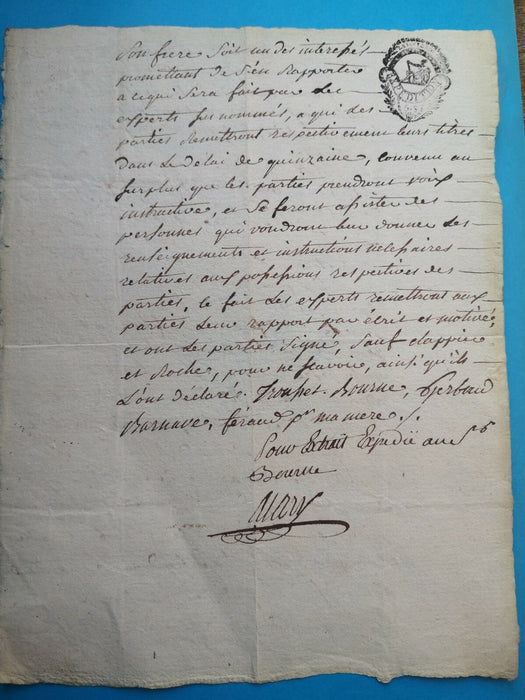 Son frere Soit un des interessés
promettant de s'en Rapporter
a ce qui Sera fait par les
experts sus nommés, a qui des
parties Remettront respectivement leurs titres
dans le delai de quinzaine, convenu au
surplus que les parties prendront voix
instructive, et Se feront assister des
personnes qui voudront leur donner des
renseignements et instructions necessaires
relatives aux possessions respectives des
parties, le fait les experts remettront aux
parties leur rapport par écrit et motivé,
et ont les parties Signé, Sauf Clappier
et Roche, pour ne scavoir, ainsi qu'ils
L'ont déclaré. Bourne,
Barnave, féraud pr ma mere.
Pour Extrait Expedié au Sr
Bourne